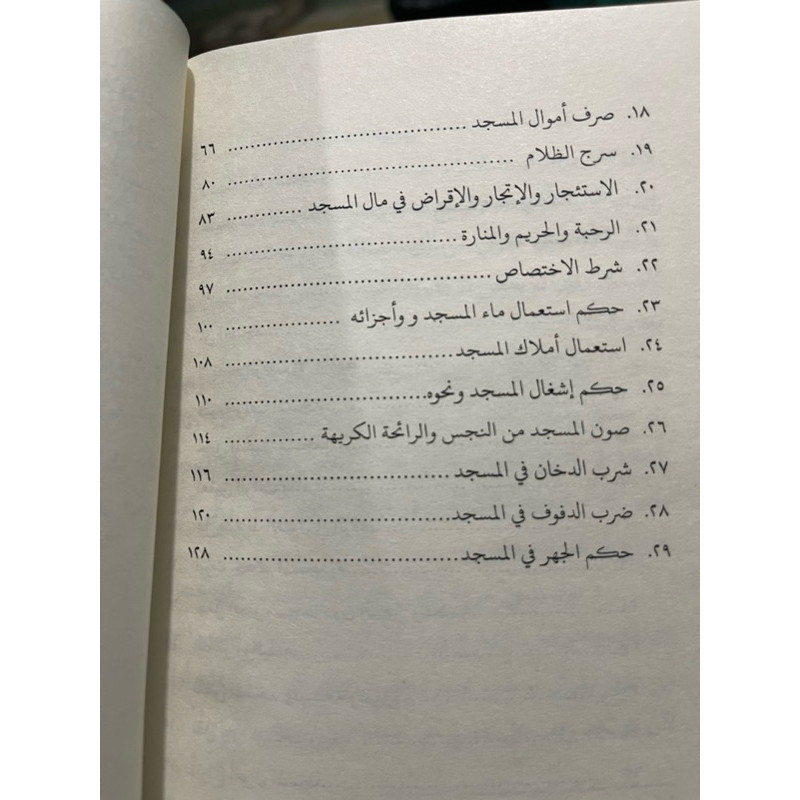 ١٨. صرف أموال المسجد ........................ ٦٦
١٩. سرج الظلام ........................ ٨٠
٢٠. الاستئجار والإتجار والإقراض في مال المسجد ............ ٨٣
٢١. الرحبة والحريم والمنارة ........................ ٩٤
٢٢. شرط الاختصاص ........................ ٩٧
٢٣. حكم استعمال ماء المسجد و وأجزائه ................ ١٠٠
٢٤. استعمال أملاك المسجد ........................ ١٠٨
٢٥. حكم إشغال المسجد ونحوه ........................ ١١٠
٢٦. صون المسجد من النجس والرائحة الكريهة ............ ١١٤
٢٧. شرب الدخان في المسجد ........................ ١١٦
٢٨. ضرب الدفوف في المسجد ........................ ١٢٠
٢٩. حكم الجهر في المسجد ........................ ١٢٨